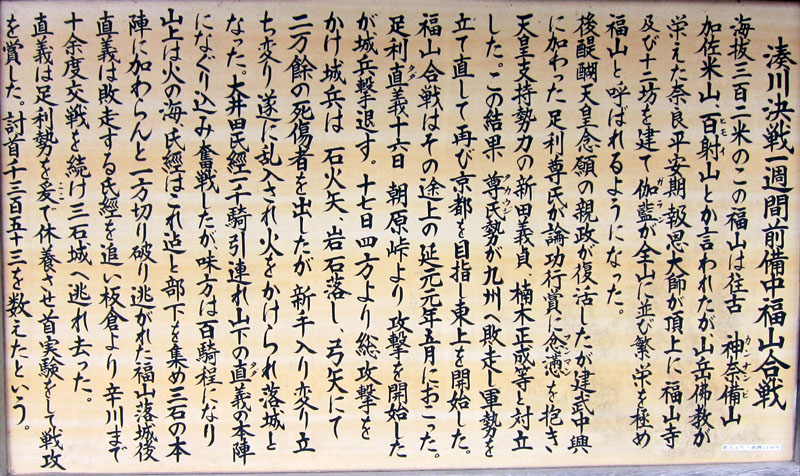 湊川決戦一週間前備中福山合戦
海抜三百二米のこの福山は往古 神奈備山
カンナンビ
加佐米山、百射山とか言われたが山岳佛教が
ヒモイ
栄えた奈良平安期、報恩大師が頂上に福山寺
及び十二坊を建て伽藍が全山に並び繁栄を極め
ガラン
福山と呼ばれるようになった。
後醍醐天皇念願の親政が復活したが建武中興
に加わった足利尊氏が論功行賞に忿懣を抱き
フンマン
天皇支持勢力の新田義貞、楠木正成等と対立
した。この結果 尊氏勢が九州へ敗走し軍勢を
タカウジ
立て直して再び京都を目指し東上を開始した。
福山合戦はその途上の延元元年五月におこった。
足利直義十六日 朝原峠より攻撃を開始した
タダ
が城兵撃退す。十七日四方より総攻撃を
かけ城兵は 石火矢、岩石落し、弓矢にて
二万餘の死傷者を出したが新手入り変り立
ち変り遂に乱入され火をかけられ落城と
なった。大井田氏經一千騎引連れ山下の直義の本陣
タダ
になぐり込み奮戦したが味方は百騎程になり
山上は火の海、氏經はこれ迠と部下を集め三石の本
陣に加わらんと一方切り破り逃がれた福山落城後
直義は敗走する氏經を追い板倉より辛川まで
十余度交戦を続け三石城へ逃れ去った。
直義は足利勢を爰で休養させ首実験をして戦攻
ここ
を賞した。討首千三百五十三を数えたという。